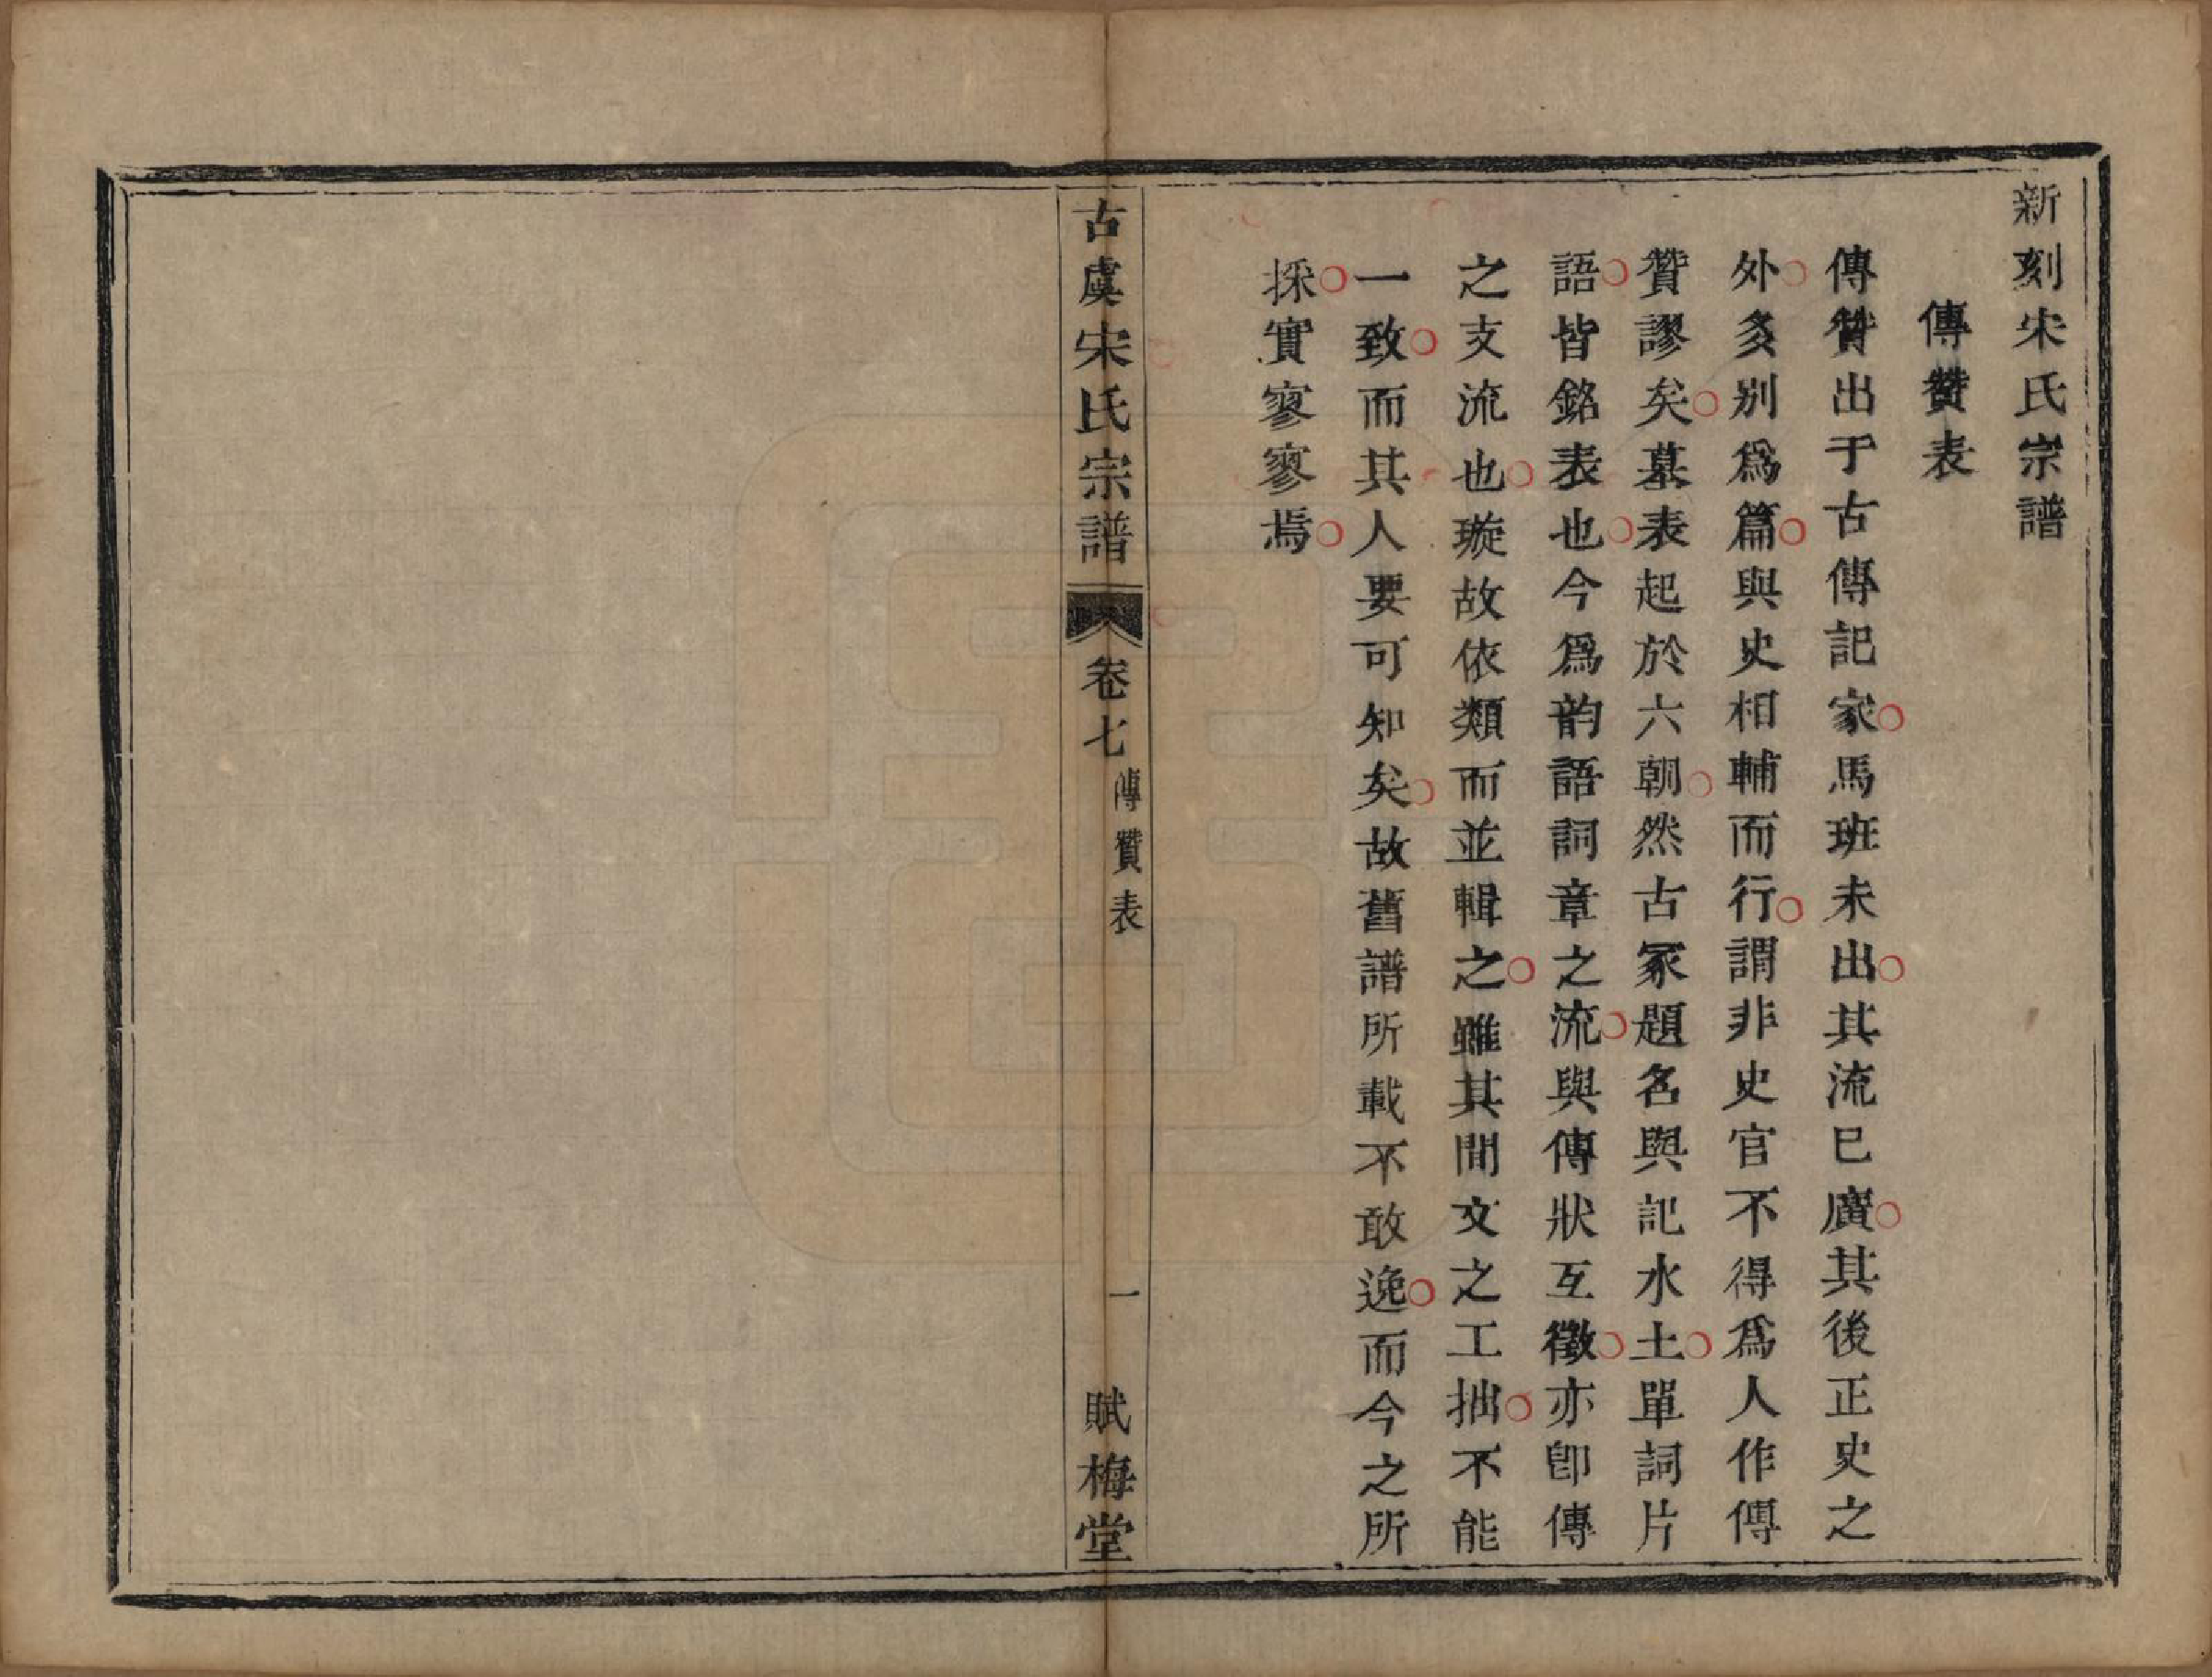 新刻宋氏宗譜
傳贊表
傳贊出于古傳記家馬班未出其流已廣其後正史之
外多别爲篇與史相輔而行謂非史官不得爲人作傳
贊謬矣墓表起於六朝然古冢題名與記水土單詞片
語皆銘表也今爲韵語詞章之流與傳狀互徵亦卽傳
之支流也璇故依類而並輯之雖其間文之工拙不能
一致而其人要可知矣故舊譜所載不敢逸而今之所
採實寥寥焉
古虞宋氏宗譜 卷七 傳贊表 一 賦梅堂